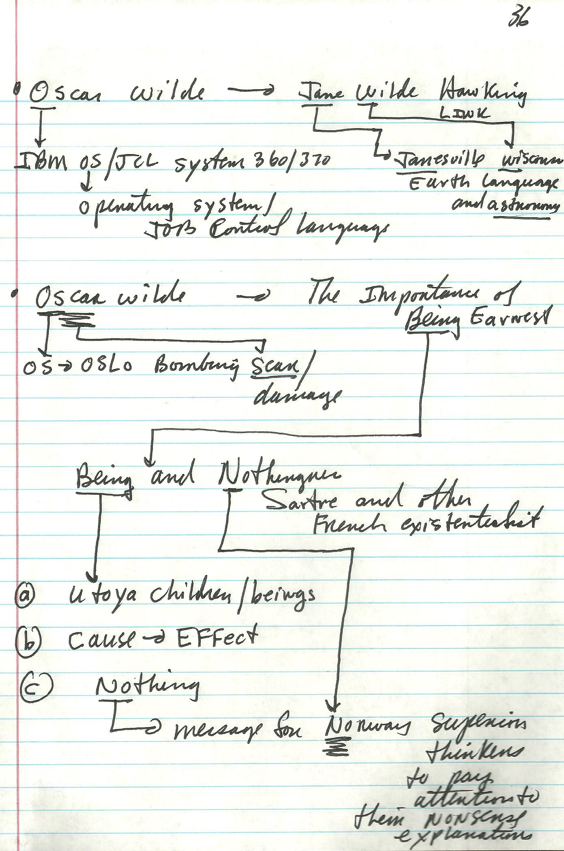 36
• Oscar Wilde → Jane Wilde Hawking
LINK
IBM OS/JCL system 360/370 Janesville Wisconsin
Earth Language
and astronomy
Operating system/
JOB Control Language
• Oscar Wilde → The Importance of
Being Earnest
OS → OSLO Bombing Scar/
damage
Being and Nothingness
Sartre and other
French existentialist
(a) Utoya children/beings
(b) Cause → EFFect
(c) Nothing
message for Norways superior
thinkers
to pay
attention to
their NONSENSE
explanations